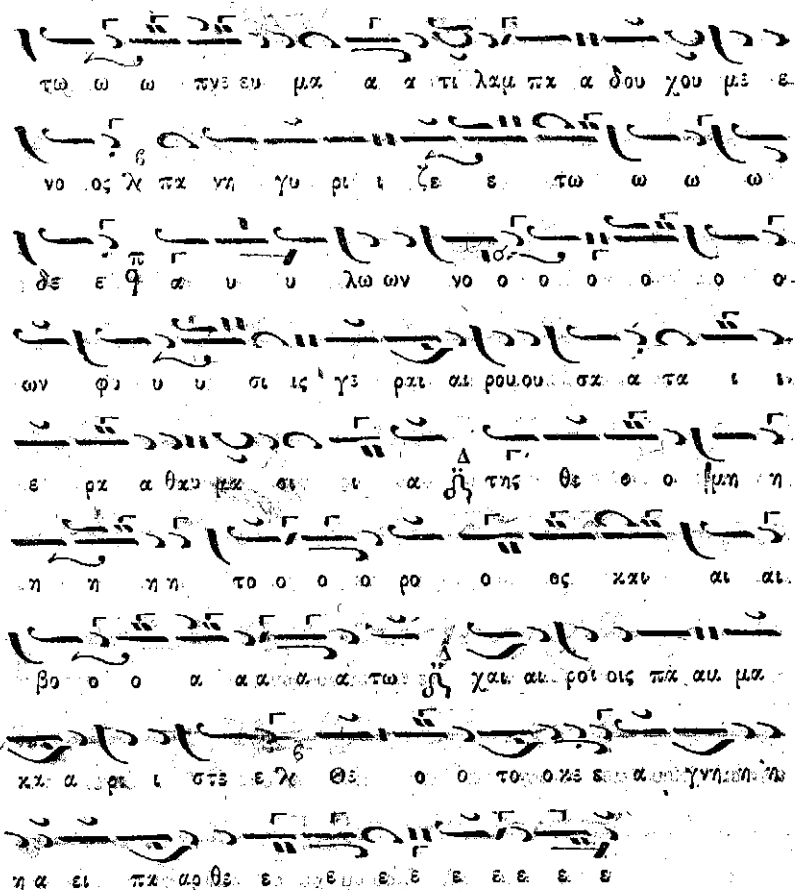 τω ω ω πνε ευ μα α α τι λαμ πα α δου χου με ε
νο ος λ πα νη γυ ρι ι ζε ε τω ω ω ω
δε ε q α υ υ λω ων νο ο ο ο ο ο ο
ων φυ υ υ σι ις γε ραι αι ρου ου σα α τα ι ι
ε ρα α θαυ μα σι ι α Δ της θε ο ο μη η
η η η η το ο ο ο ρο ο ος και αι αι
βο ο ο α α α α α τω Δ χαι αι ροι οις πα αμ μα
κα α ρι ι στε ε λ Θε ο ο το ο κε ε α γνη η η
η α ει πα αρ θε ε ε ε ε ε ε ε ε ε